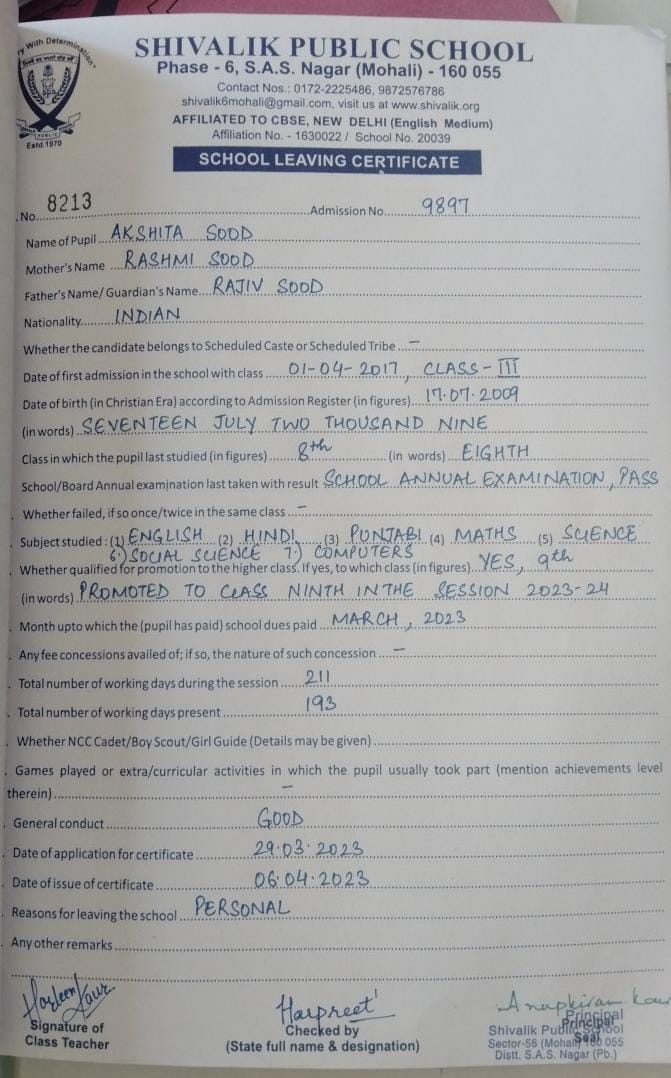 ry With Determination"
SHIVALIK PUBLIC SCHOOL
Phase - 6, S.A.S. Nagar (Mohali) - 160 055
Contact Nos.: 0172-2225486, 9872576786
shivalik6mohali@gmail.com, visit us at www.shivalik.org
AFFILIATED TO CBSE, NEW DELHI (English Medium)
Affiliation No. - 1630022 / School No. 20039
Estd.1970
SCHOOL LEAVING CERTIFICATE
No. 8213 Admission No. 9897
Name of Pupil AKSHITA SOOD
Mother's Name RASHMI SOOD
Father's Name/ Guardian's Name RAJIV SOOD
Nationality INDIAN
Whether the candidate belongs to Scheduled Caste or Scheduled Tribe –
Date of first admission in the school with class 01-04-2017, CLASS-III
Date of birth (in Christian Era) according to Admission Register (in figures) 17.07.2009
(in words) SEVENTEEN JULY TWO THOUSAND NINE
Class in which the pupil last studied (in figures) 8th (in words) EIGHTH
School/Board Annual examination last taken with result SCHOOL ANNUAL EXAMINATION, PASS
Whether failed, if so once/twice in the same class –
Subject studied : (1) ENGLISH (2) HINDI (3) PUNJABI (4) MATHS (5) SCIENCE
6.) SOCIAL SCIENCE 7.) COMPUTERS
Whether qualified for promotion to the higher class. If yes, to which class (in figures) YES, 9th
(in words) PROMOTED TO CLASS NINTH IN THE SESSION 2023-24
Month upto which the (pupil has paid) school dues paid MARCH, 2023
Any fee concessions availed of; if so, the nature of such concession –
Total number of working days during the session 211
Total number of working days present 193
Whether NCC Cadet/Boy Scout/Girl Guide (Details may be given)
Games played or extra/curricular activities in which the pupil usually took part (mention achievements level
therein) –
General conduct GOOD
Date of application for certificate 29.03.2023
Date of issue of certificate 06.04.2023
Reasons for leaving the school PERSONAL
Any other remarks
Harleen Kaur Harpreet Anupkiran Kaur
Signature of
Class Teacher
Checked by
(State full name & designation)
Principal
Principal
Seal
Shivalik Public School
Sector-56 (Mohali) 160 055
Distt. S.A.S. Nagar (Pb.)